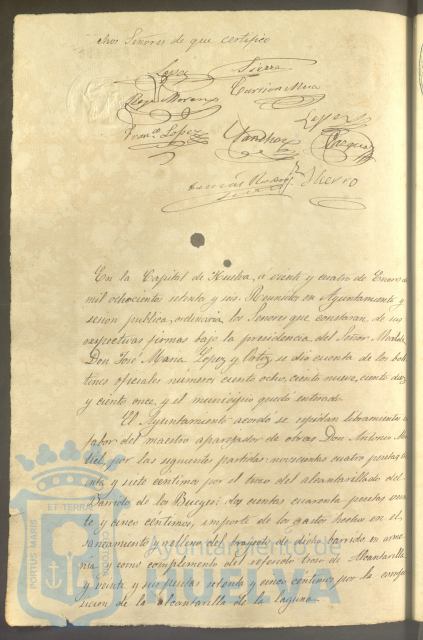 chos Señores de que certifico
Lopez Sierra
Rojo Moreno Carrion Mesa
Lopez
Franco. Lopez Sandhoz Vazquez
En la Capital de Huelva, a veinte y cuatro de Enero de
mil ochocientos setenta y seis. Reunidos en Ayuntamiento y
sesion publica, ordinaria los Señores que constaran de sus
respectivas firmas bajo la presidencia del Señor Alcalde
Don José Maria Lopez y Ortiz se dio cuenta de los bole
tines oficiales número ciento ocho, ciento nueve, ciento diez
y ciento once, y el municipio quedo enterado.
El Ayuntamiento acordó se espidan libramientos a
fabor del maestro aparejador de obras Don Antonio
por las siguientes partidas: novecientas cuatro pesetas
y siete centimos por el trozo del alcantarillado del
Barrido de los Bueyes: dos cientas cuarenta pesetas vein
te y cinco céntimos, importe de los gastos hechos en el
saneamiento y relleno del trayecto de dicho barrido en
como complemento del referido trozo de Alcantarilla
y veinte y seis pesetas setenta y cinco centimos por la compo
sicion de la alcantarilla de la laguna.
Ayuntamiento de
HUELVA
PORTUS MARIS
ET TERRAE